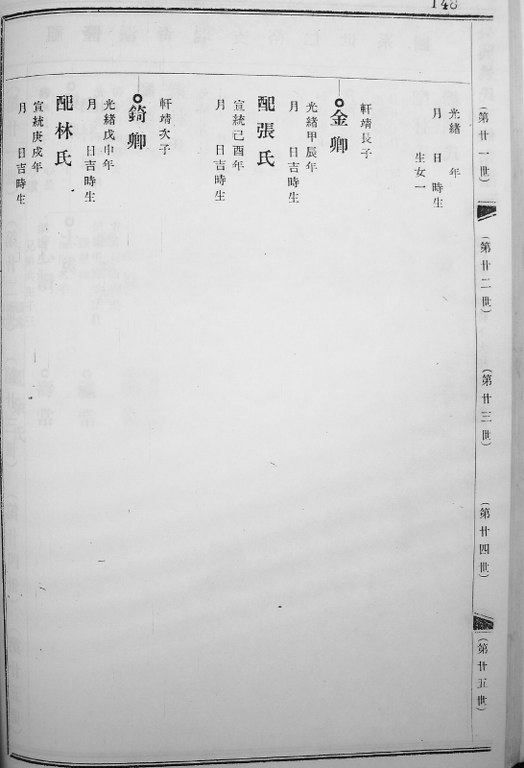 148
(第廿一世)
(第廿二世)
(第廿三世)
(第廿四世)
(第廿五世)
光緒 年
月 日 時生
生女一
軒靖長子
金卿
光緒甲辰年
月 日吉時生
配張氏
宣統己酉年
月 日吉時生
軒靖次子
錡卿
光緒戊申年
月 日吉時生
配林氏
宣統庚戌年
月 日吉時生